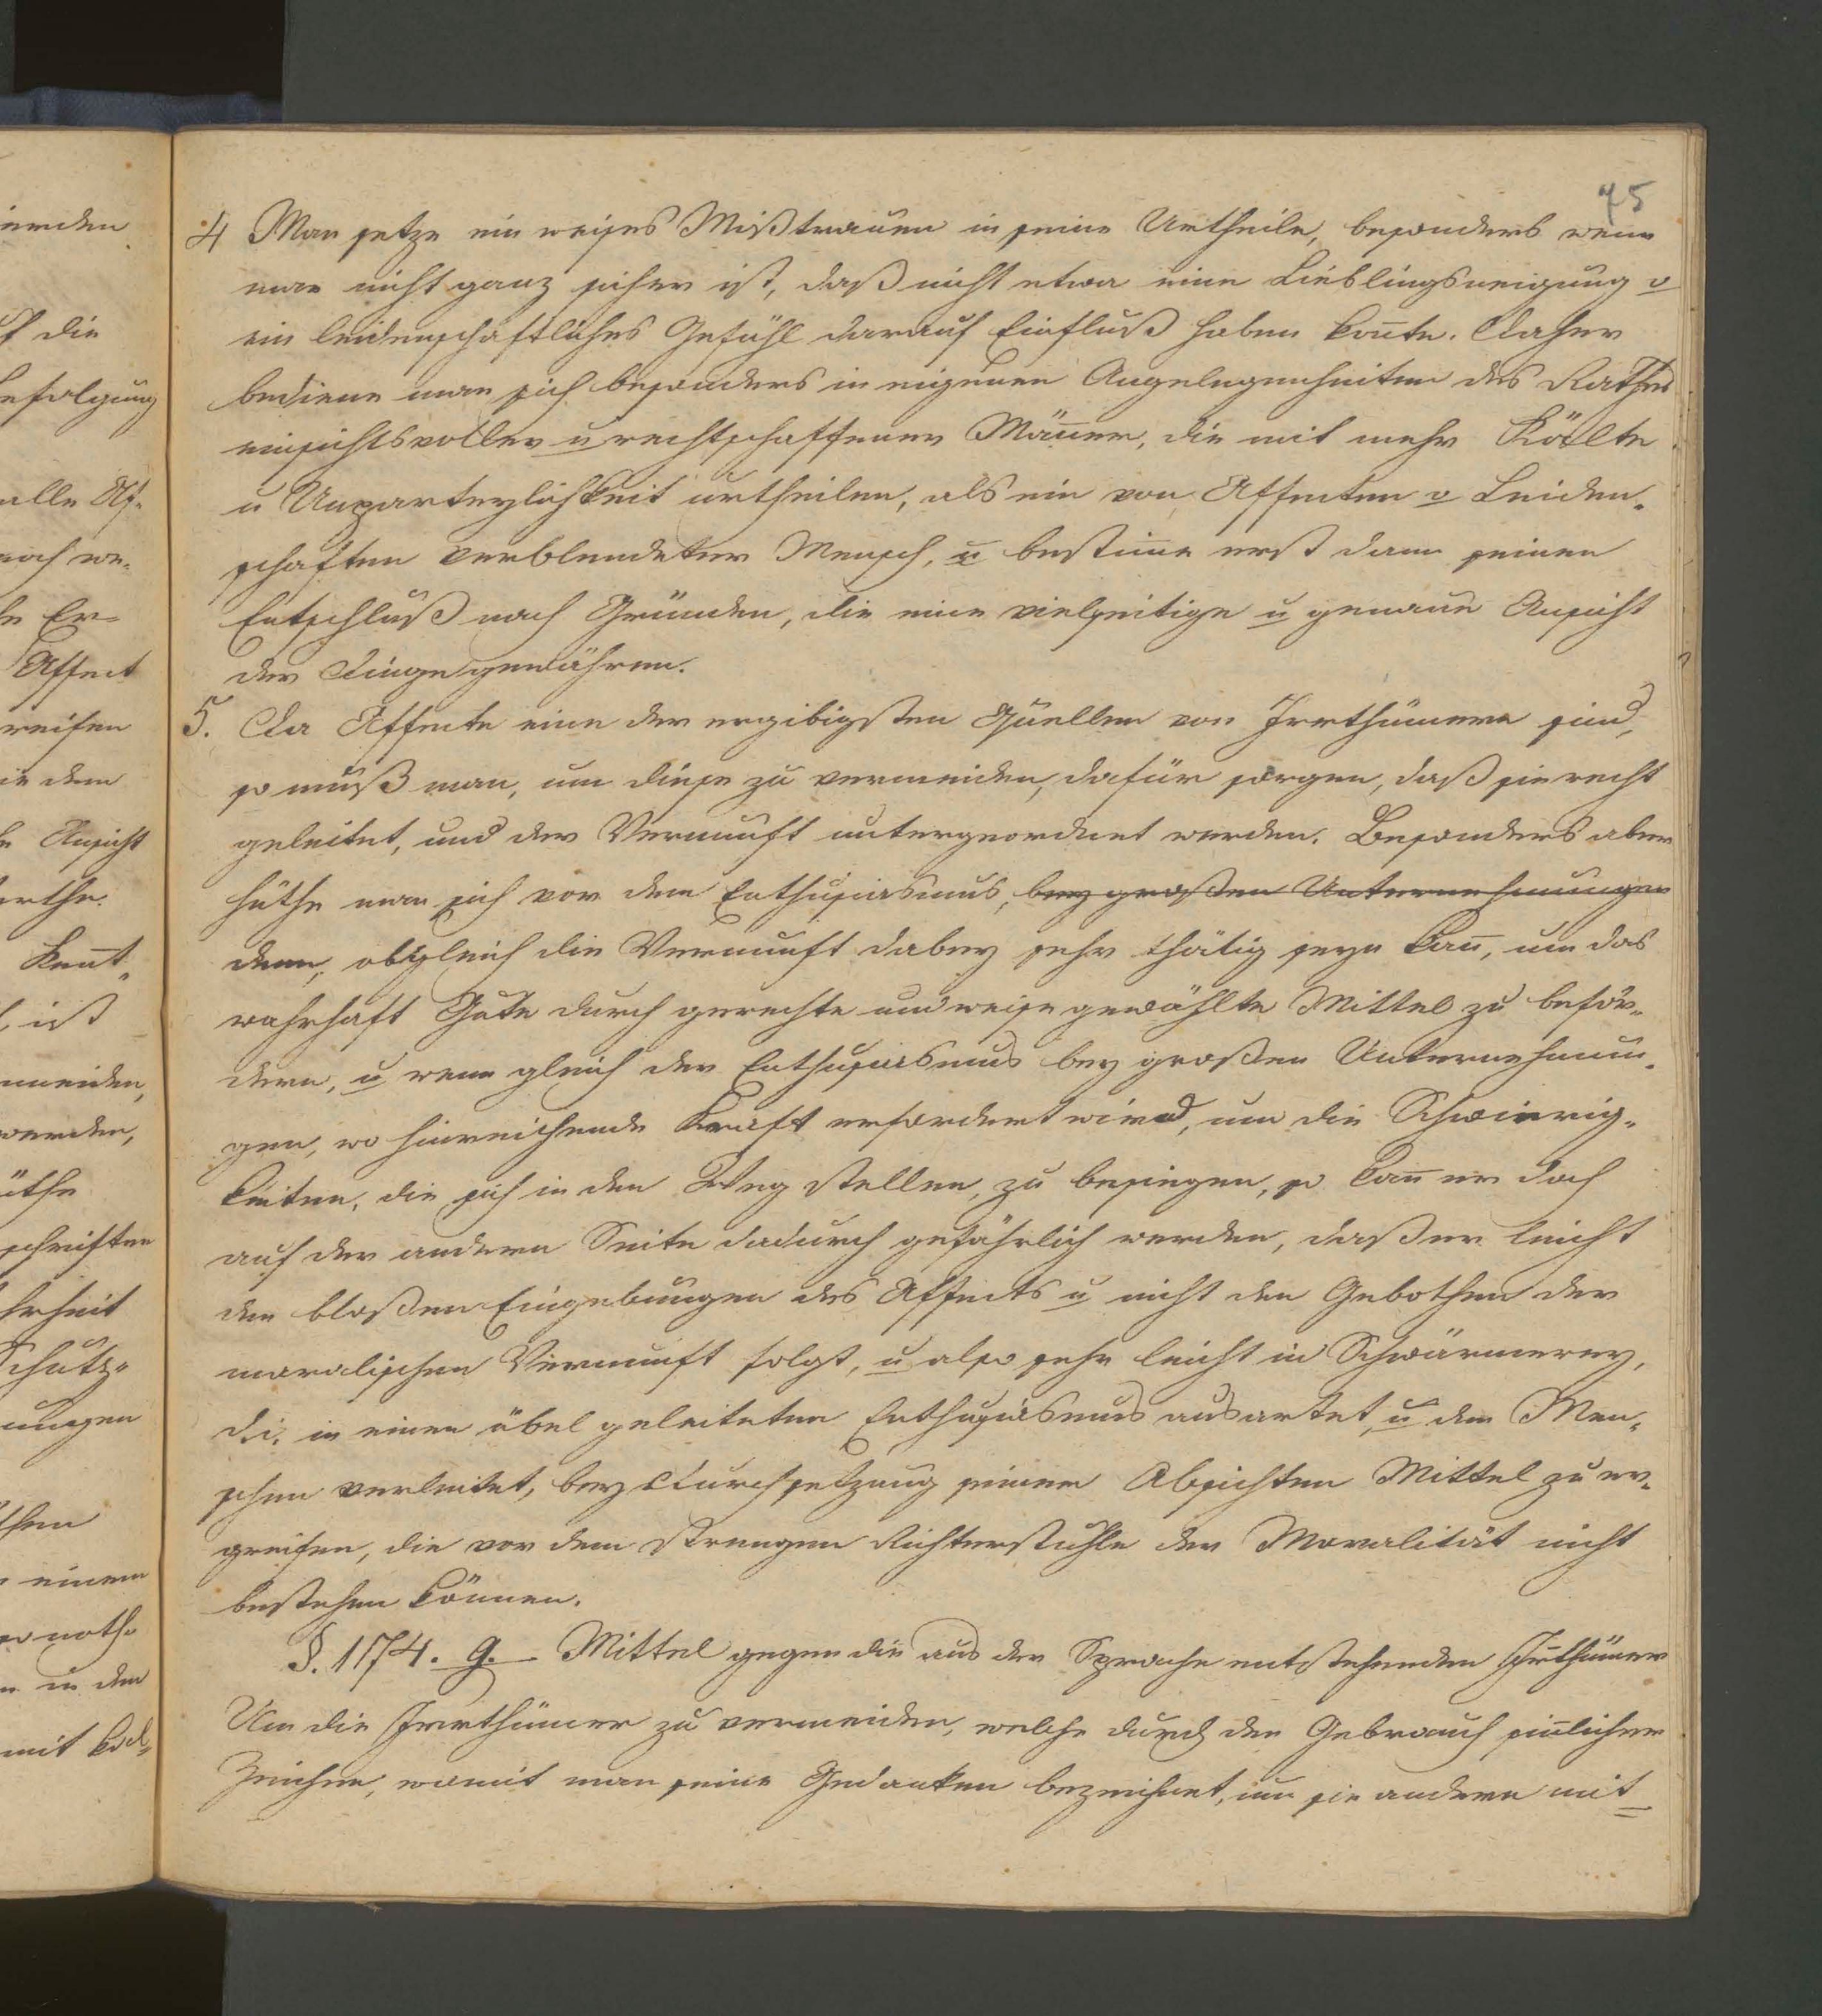 75
4 Man setze ein weises Mißtrauen in seine Urtheile, besonders wenn
man nicht ganz sicher ist, daß nicht etwa eine Lieblingsneigung o
ein leidenschaftliches Gefühl darauf Einfluß haben kon̄te. Daher
bediene man sich besonders in eigenen Angelegenheiten des Rathes
einsichtsvoller u rechtschaffener Män̄er, die mit mehr Kälte
u Unparteylichkeit urtheilen, als ein von Affecten o Leiden„
schaften verblendeter Mensch, u bestim̄e erst dann seinen
Entschluß nach Gründen, die eine vielseitige u genaue Ansicht
der Dinge gewähren.
5. Da Affecte eine der ergibigsten Quellen von Irrthümern sind,
so muß man, um diese zu vermeiden, dafür sorgen, daß sie recht
geleitet, und der Vernunft untergeordnet werden. Besonders aber
hüthe man sich vor dem Enthusiasmus, bey großen Unternehmungen
denn, obgleich die Vernunft dabey sehr thätig seyn kan̄, um das
wahrhaft Gute durch gerechte und weise gewählte Mittel zu beför„
dern, u wenn gleich der Enthusiasmus bey großen Unternehmun„
gen, wo hinreichende Kraft erfordert wird, um die Schwierig„
keiten, die sich in den Weg stellen, zu besiegen, so kan̄ er doch
auf der andern Seite dadurch gefährlich werden, daß er leicht
den bloßen Eingebungen des Affects u nicht den Gebothen der
moralischen Vernunft folgt, u also sehr leicht in Schwärmerey,
d.i. in einen übel geleiteten Enthusiasmus ausartet, u den Men„
schen verleitet, bey Durchsetzung seiner Absichten Mittel zu er„
greifen, die vor dem strengen Richterstuhle der Moralität nicht
bestehen können.
§. 174. 9. Mittel gegen die aus der Sprache entstehenden Irrthümer
Um die Irrthümer zu vermeiden, welche durch den Gebrauch sin̄licher
Zeichen, womit man seine Gedanken bezeichnet, um sie andern mit